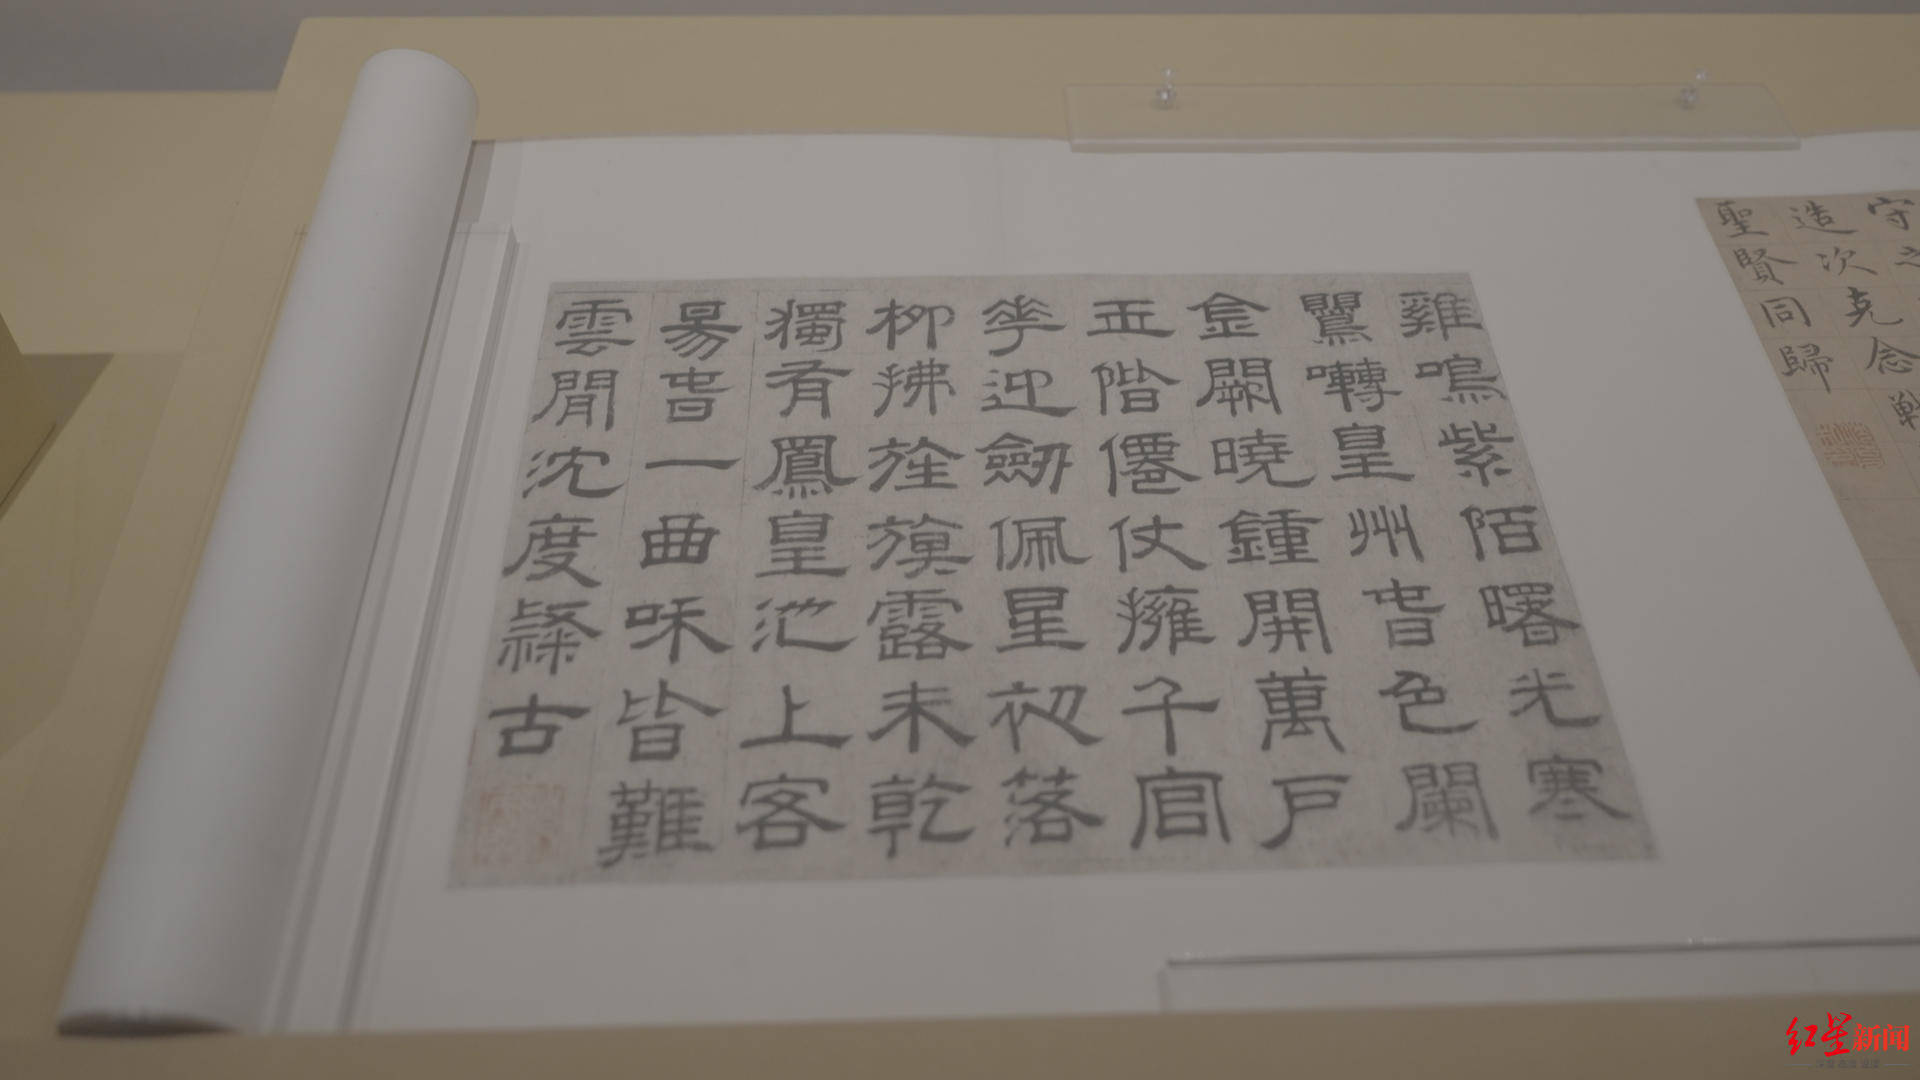 守之
造次克念戰
聖賢同歸
雞鳴紫陌曙光寒
鸎囀皇州旾色闌
金闕曉鍾開萬戶
玉階僊仗擁千官
華迎劒佩星初落
柳拂旌旗露未乾
獨有鳳皇池上客
昜旾一曲咊皆難
雲閒沈度隸古
红星新闻